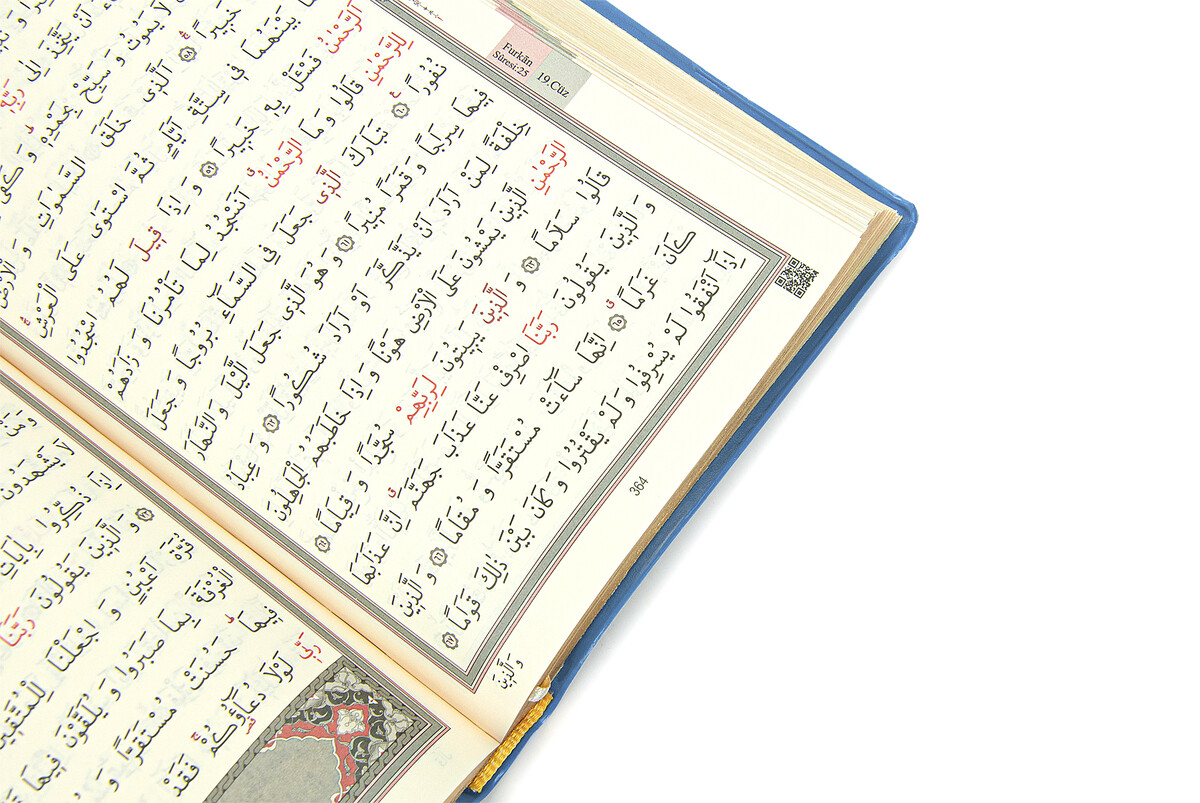 Furkân
Sûresi:25
19.Cüz
اَنْ يَتَّخِذَ اِلٰى رَبِّهِ
لَا يَمُوتُ وَ سَبِّحْ بِحَمْدِهِ وَ كَفٰى
خَبِيرًا ﴿٥٨﴾ اَلَّذِى خَلَقَ السَّمٰوَاتِ وَ الْاَرْضَ
بَيْنَهُمَا فِى سِتَّةِ اَيَّامٍ ثُمَّ اسْتَوٰى عَلَى الْعَرْشِ
اَلرَّحْمٰنُ فَسْئَلْ بِهِ خَبِيرًا ﴿٥٩﴾ وَ اِذَا قِيلَ لَهُمُ اسْجُدُوا
لِلرَّحْمٰنِ قَالُوا وَ مَا الرَّحْمٰنُ اَنَسْجُدُ لِمَا تَاْمُرُنَا وَ زَادَهُمْ
نُفُورًا ﴿٦٠﴾ تَبَارَكَ الَّذِى جَعَلَ فِى السَّمَٓاءِ بُرُوجًا وَ جَعَلَ
فِيهَا سِرَاجًا وَ قَمَرًا مُنِيرًا ﴿٦١﴾ وَ هُوَ الَّذِى جَعَلَ الَّيْلَ وَ النَّهَارَ
خِلْفَةً لِمَنْ اَرَادَ اَنْ يَذَّكَّرَ اَوْ اَرَادَ شُكُورًا ﴿٦٢﴾ وَ عِبَادُ
الرَّحْمٰنِ الَّذِينَ يَمْشُونَ عَلَى الْاَرْضِ هَوْنًا وَ اِذَا خَاطَبَهُمُ الْجَاهِلُونَ
قَالُوا سَلَامًا ﴿٦٣﴾ وَ الَّذِينَ يَبِيتُونَ لِرَبِّهِمْ سُجَّدًا وَ قِيَامًا ﴿٦٤﴾
وَ الَّذِينَ يَقُولُونَ رَبَّنَا اصْرِفْ عَنَّا عَذَابَ جَهَنَّمَ اِنَّ عَذَابَهَا
كَانَ غَرَامًا ﴿٦٥﴾ اِنَّهَا سَٓاءَتْ مُسْتَقَرًّا وَ مُقَامًا ﴿٦٦﴾ وَ الَّذِينَ
اِذَٓا اَنْفَقُوا لَمْ يُسْرِفُوا وَ لَمْ يَقْتُرُوا وَ كَانَ بَيْنَ ذٰلِكَ قَوَامًا ﴿٦٧﴾
وَ الَّذِينَ
364
لَا يَشْهَدُونَ
اِذَا ذُكِّرُوا بِاٰيَاتِ
﴿٧٣﴾ وَ الَّذِينَ يَقُولُونَ رَبَّنَا
قُرَّةَ اَعْيُنٍ وَ اجْعَلْنَا لِلْمُتَّقِينَ
الْغُرْفَةَ بِمَا صَبَرُوا وَ يُلَقَّوْنَ فِيهَا
فِيهَا حَسُنَتْ مُسْتَقَرًّا وَ
رَبِّى لَوْلَا دُعَٓاؤُكُمْ فَقَدْ